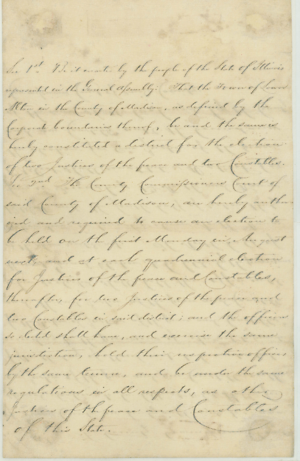 Sec 1st. Be it enacted by the people of the State of Illinois
represented in the General Assembly That the Town of Lower
Alton in the County of Madison, as defined by the
Corporate boundaries thereof, be and the same is
hereby constituted a district for the election
of two Justices of the peace and two Constables.
Sec 2nd The County Commissioners Court of
said County of Madison, are hereby author
ized and required to cause an election to
be held on the first Monday in August
next and at each quadrennial election
for Justices of the peace and Constables,
thereafter, for two Justices of the peace and
two Constables in said district; and the officers
so elected shall have, and exercise the same
jurisdiction, hold their respective offices
by the same tenure, and be under the same
regulations in all respects, as other
Justices of the peace and Constables
of this State.